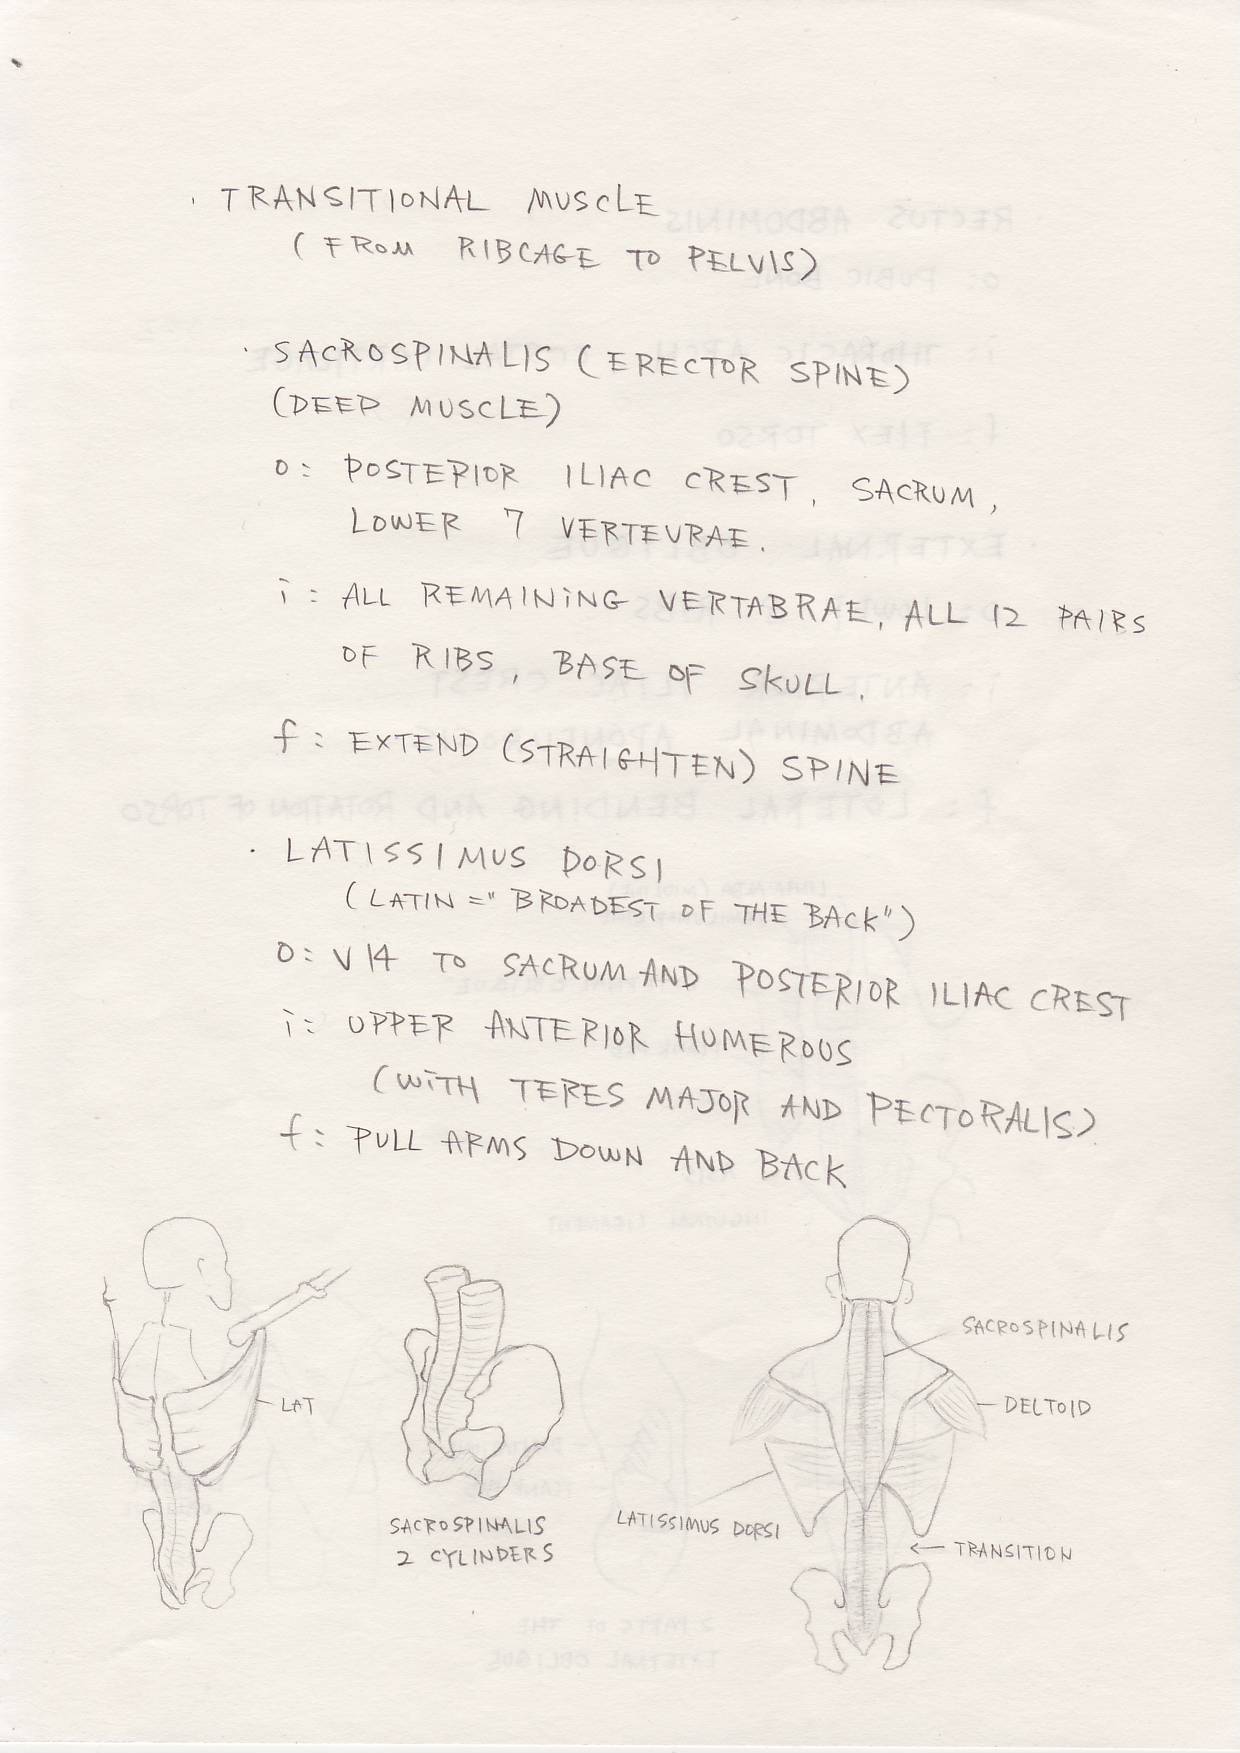 · TRANSITIONAL MUSCLE
(FROM RIBCAGE TO PELVIS)
· SACROSPINALIS (ERECTOR SPINE)
(DEEP MUSCLE)
O: POSTERIOR ILIAC CREST, SACRUM,
LOWER 7 VERTEVRAE.
i: ALL REMAINING VERTABRAE, ALL 12 PAIRS
OF RIBS, BASE OF SKULL.
f: EXTEND (STRAIGHTEN) SPINE
· LATISSIMUS DORSI
(LATIN = "BROADEST OF THE BACK")
O: V14 TO SACRUM AND POSTERIOR ILIAC CREST
i: UPPER ANTERIOR HUMEROUS
(WITH TERES MAJOR AND PECTORALIS)
f: PULL ARMS DOWN AND BACK
LAT
SACROSPINALIS
2 CYLINDERS
SACROSPINALIS
DELTOID
LATISSIMUS DORSI
← TRANSITION